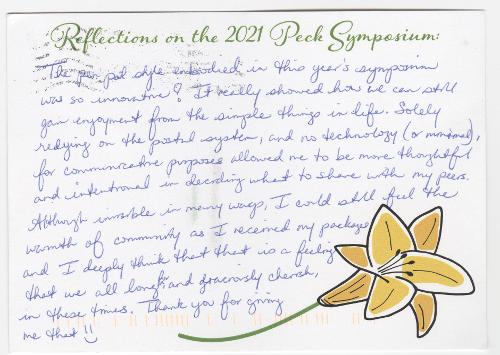 Reflections on the 2021 Peck Symposium:
The pen pal style embodied in this year's symposium
was so innovative! It really showed how we can still
gain enjoyment from the simple things in life. Solely
relying on the postal system, and no technology (or minimal),
for communicative purposes allowed me to be more thoughtful
and intentional in deciding what to share with my peers.
Although invisible in many ways, I could still feel the
warmth of community as I received my package
and I deeply think that that is a feeling
that we all long for and graciously cherish,
in these times. Thank you for giving
me that :)